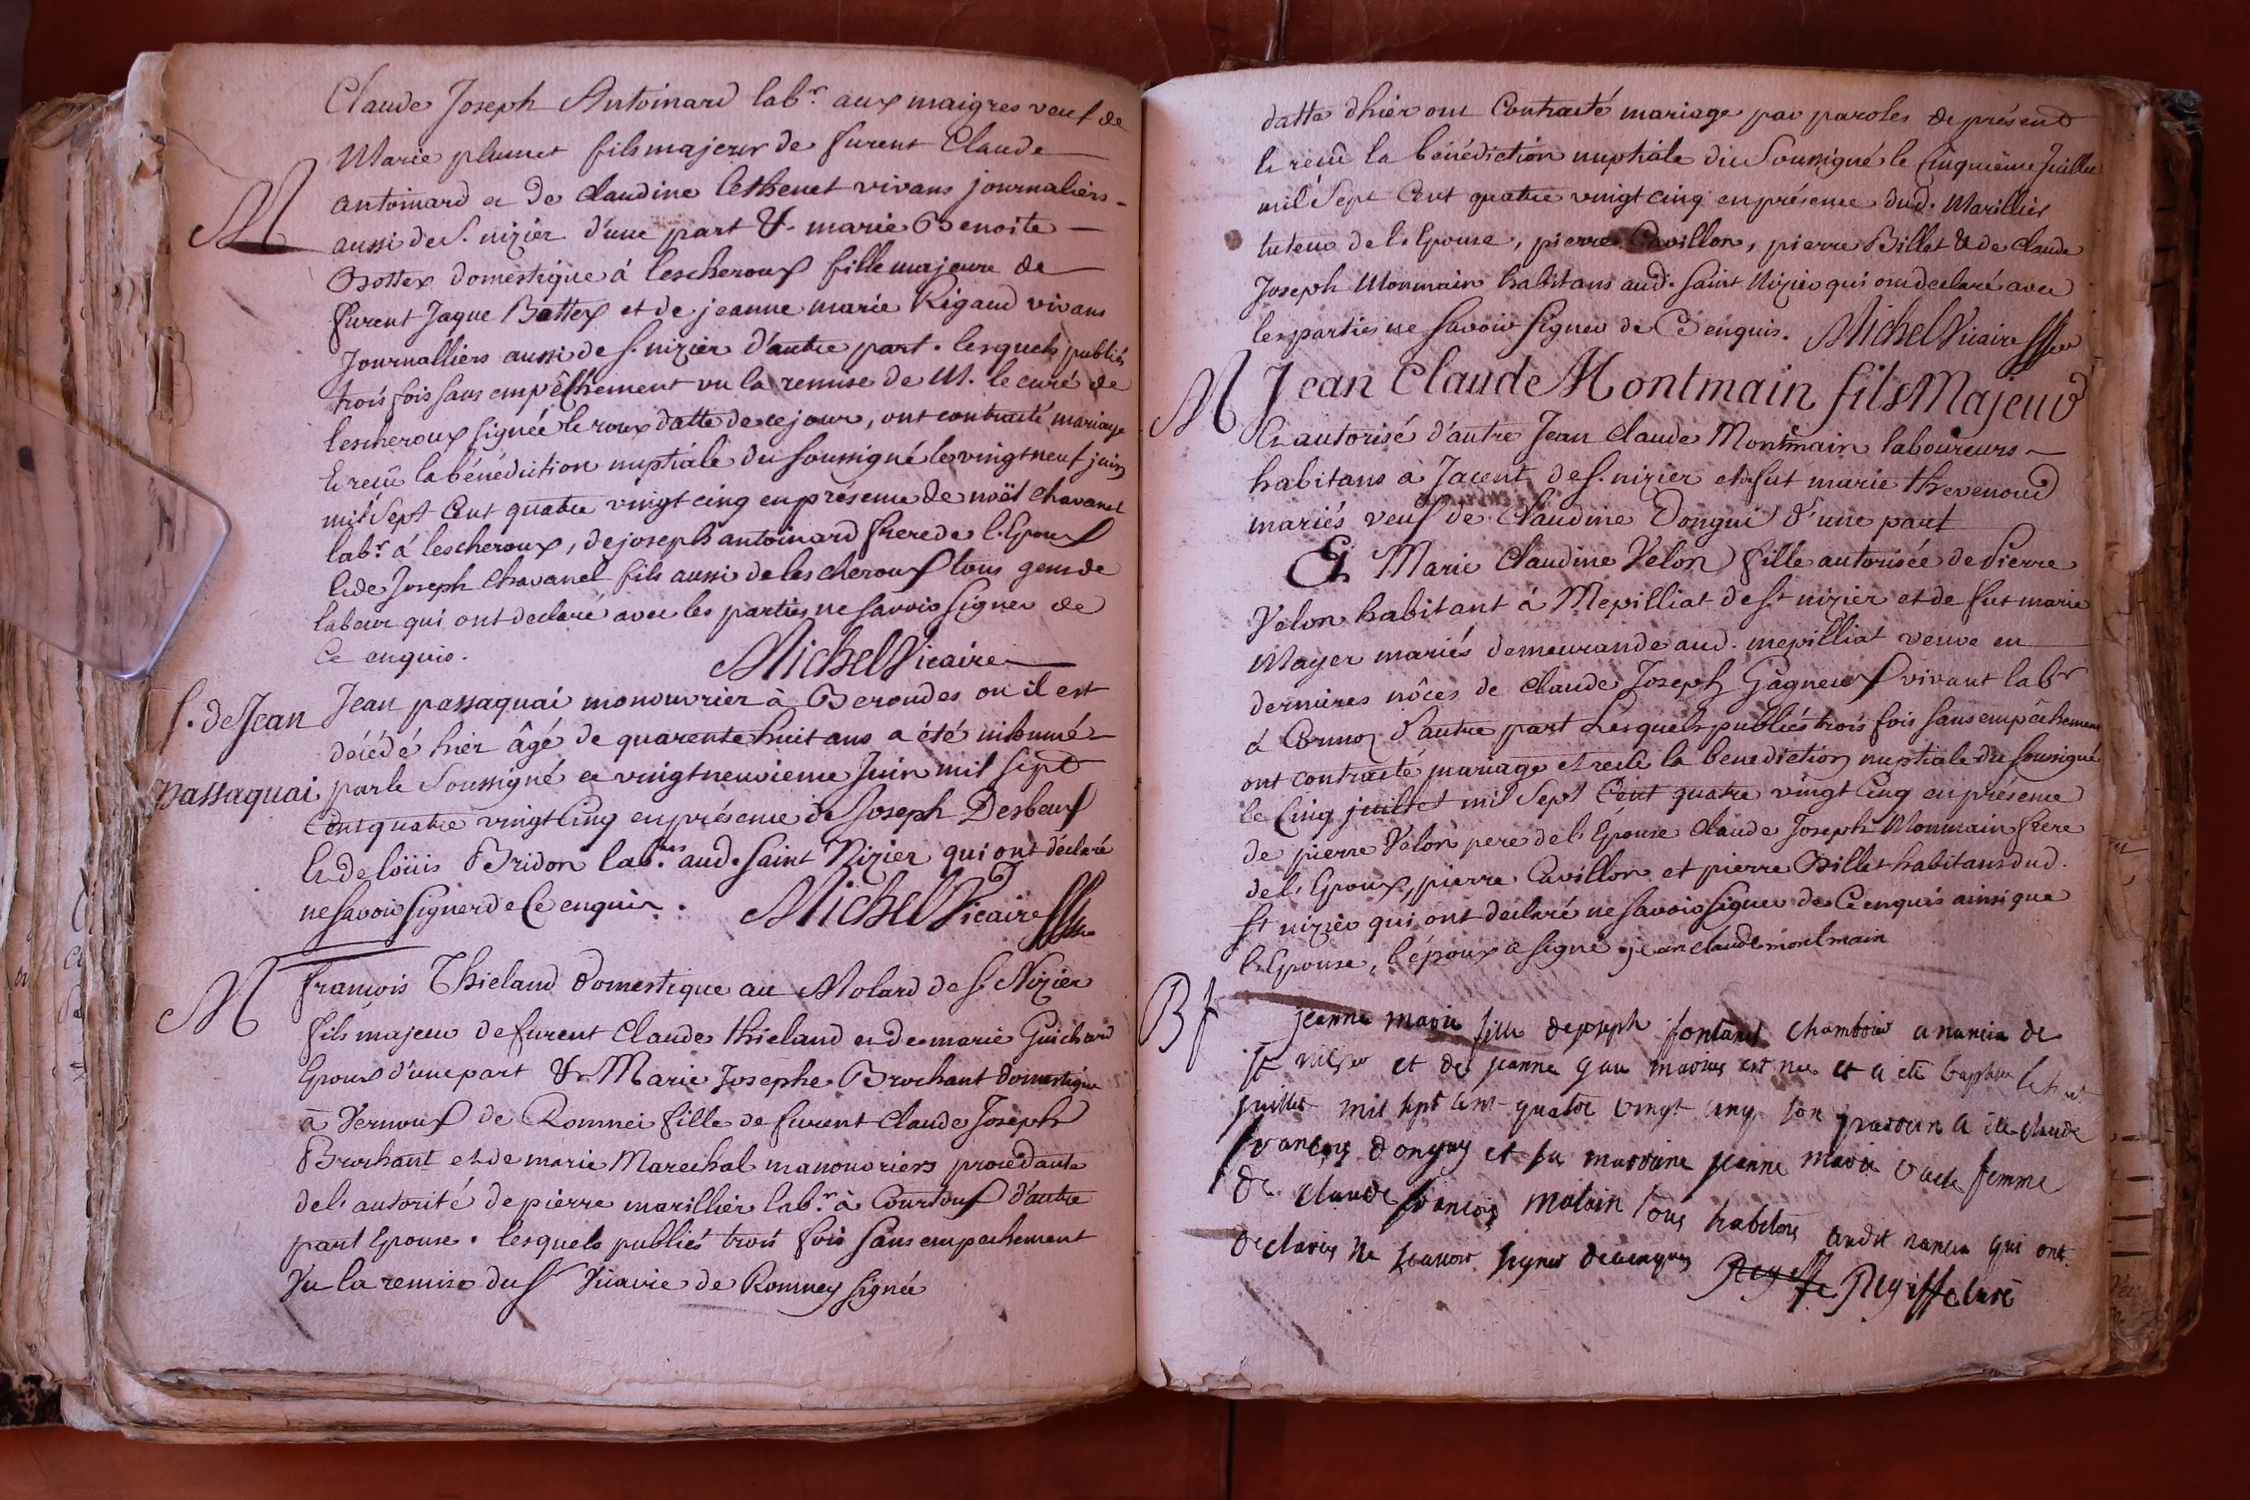 Claude Joseph Antoinard labr. aux maigres veuf de
Marie plumet fils majeur de furent Claude
M
antoinard et de Claudine Lethenet vivans journaliers
aussi de S. nizier d'une part & marie Benoite
Bottex domestique à lescheroux fille majeure de
furent Jaque Bottex et de jeanne marie Rigaud vivans
Journalliers aussi de S. nizier d'autre part. lesquels publiés
trois fois sans empêchement vu la remise de M. le curé de
lescheroux signée leroux datte de ce jour, ont contracté mariage
& reçû la bénédiction nuptiale du soussigné le vingt neuf juin
mil Sept Cent quatre vingt cinq en présence de noël Chavanel
labr. à lescheroux, de joseph antoinard frere de l'Epoux
& de Joseph Chavanel fils aussi de lescheroux tous gens de
labeur qui ont declaré avec les parties ne savoir signer de
Ce enquis.
Michel Vicaire
S. de Jean
passaquai
Jean passaquai manouvrier à Beroudes ou il est
décédé hier âgé de quarente huit ans a été inhumé
par le Soussigné ce vingt neuvieme Juin mil sept
Cent quatre vingt Cinq en présence de Joseph Desbeuf
& de loüis Bridon labrs. aud. Saint Nizier qui ont déclaré
ne savoir signer de Ce enquis.
Michel Vicaire
M
françois Thieland Domestique au Molard de S. Nizier
fils majeur de furent Claude thieland et de marie Guichard
Epoux d'une part & Marie Josephe Brochant domestique
à Vernoux de Romnei fille de furent Claude Joseph
Brochant et de marie Marechal manouvriers procedante
de l'autorité de pierre marillier labr. à Courtouf d'autre
part Epouse. lesquels publiés trois fois sans empechement
Vu la remise du Sr Vicaire de Romney signée
datte d'hier ont Contracté mariage par paroles de présent
& reçû la bénédiction nuptiale du Soussigné le Cinquième Juillet
mil Sept Cent quatre vingt cinq en présence dud. Marillier
tuteur de l'Epouse, pierre Cavillon, pierre Billet & de Claude
Joseph Monmain habitans aud. Saint Nizier qui ont declaré avec
les parties ne savoir signer de Ce enquis. Michel Vicaire
M
Jean Claude Montmain fils Majeur
& autorisé d'autre Jean Claude Montmain laboureurs
habitans a Jacent de S. nizier et de fut marie threvenoud
mariés veuf de Claudine Donguï d'une part
Et Marie Claudine Velon fille autorisée de Pierre
Velon habitant à Mepilliat de St nizier et de fut marie
Mayer mariés demeurande aud. mepilliat veuve en
dernieres nôces de Claude Joseph Gagneux vivant labr
à Cormoz d'autre part Lesquels publiés trois fois sans empêchement
ont contracté mariage et recu la benediction nuptiale du soussigné
le Cinq juillet mil Sept Cent quatre vingt Cinq en présence
de pierre Velon pere de l'Epouse Claude Joseph Monmain frere
de l'Epoux, pierre Cavillon et pierre Billet habitans dud.
St nizier qui ont declaré ne savoir signer de Ce enquis ainsi que
l'Epouse, l'époux a signé. jean claude montmain
B f
jeanne marie fille de joseph fontanet chambois a nancia de
St nisier et de jeanne gau mariés est née et a été baptisée le
juillet mil sept cent quatre vingt cinq son parrain a été claude
françois donguy et sa marraine jeanne marie vach femme
de claude françois matrin tous habitans audit nancia qui ont
declarés ne scavoir signer de ce enquis Reyffe Reyiffe curé